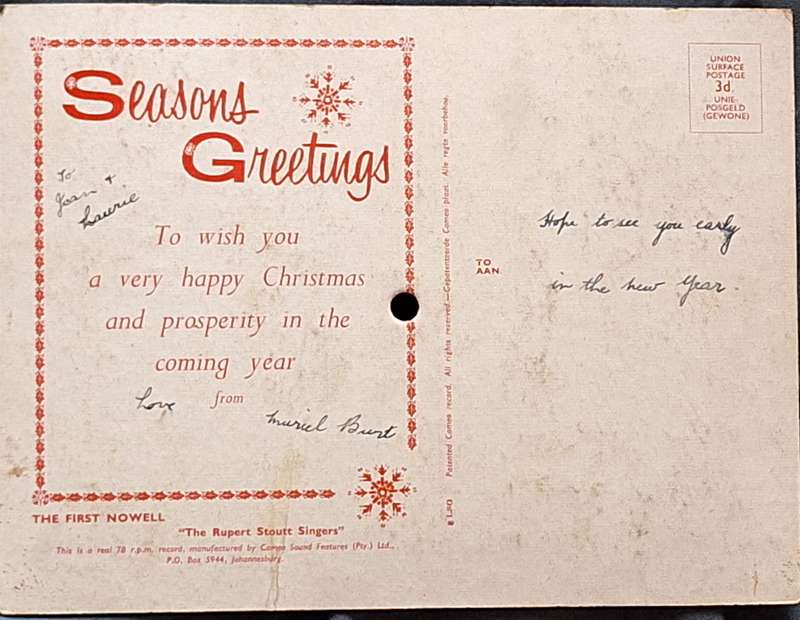 Seasons
Greetings
To
Joan +
Laurie
To wish you
a very happy Christmas
and prosperity in the
coming year
Love from
Muriel Burt
THE FIRST NOWELL
"The Rupert Stoutt Singers"
This is a real 78 r.p.m. record, manufactured by Cameo Sound Features (Pty.) Ltd.,
P.O. Box 5944, Johannesburg.
Patented Cameo record. All rights reserved.—Gepatenteerde Cameo plaat. Alle regte voorbehou.
UNION
SURFACE
POSTAGE
3d.
UNIE-
POSGELD
(GEWONE)
TO
AAN
Hope to see you early
in the new Year.